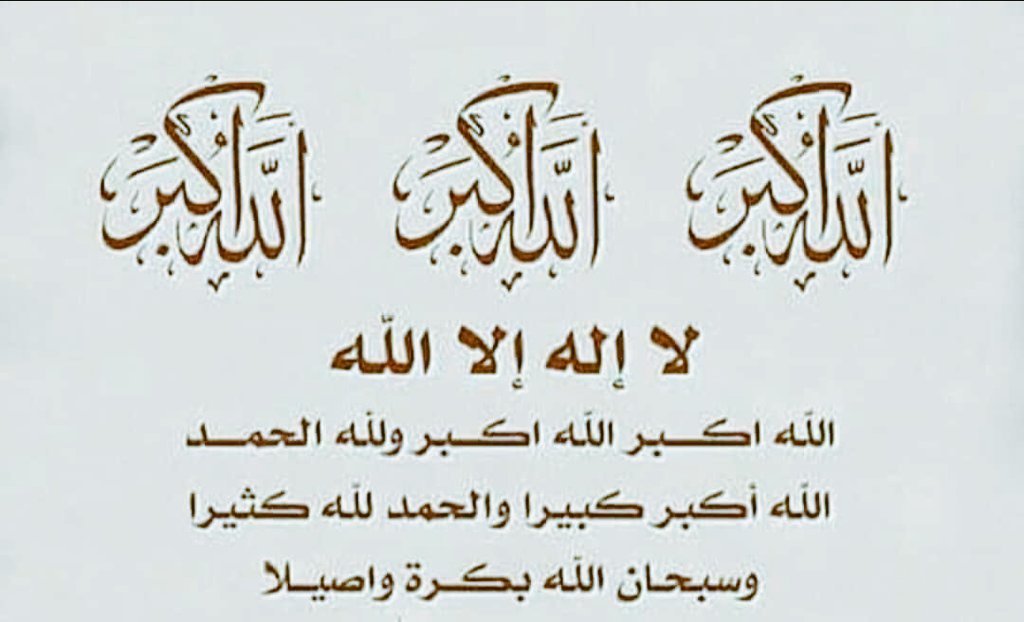 الله أكبر الله أكبر الله أكبر
لا إله إلا الله
الله اكبر الله اكبر ولله الحمد
الله أكبر كبيرا والحمد لله كثيرا
وسبحان الله بكرة واصيلا